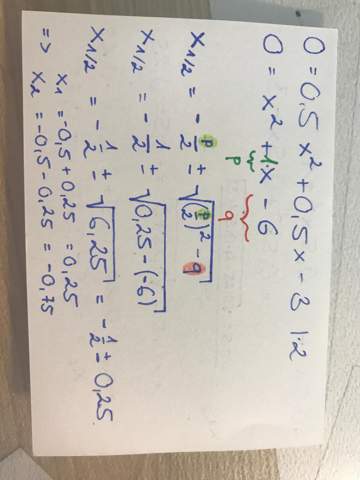 0 = 0,5 x² + 0,5x - 3 |·2
0 = x² + 1·x - 6
p q
x₁/₂ = - p/2 ± √((p/2)² - q)
x₁/₂ = - 1/2 ± √(0,25 - (-6))
x₁/₂ = - 1/2 ± √(6,25) = - 1/2 ± 0,25
x₁ = -0,5 + 0,25 = 0,25
=> x₂ = -0,5 - 0,25 = -0,75